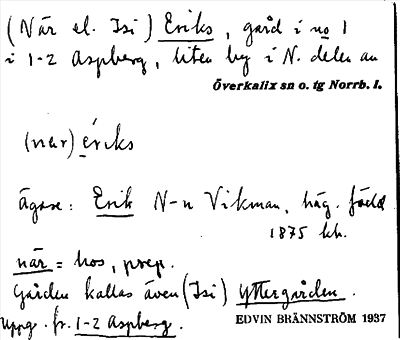 (När el. Isi) Eriks, gård i no 1
i 1-2 Aspberg, liten by i N. delen av
Överkalix sn o. tg Norrb. l.
(nær) ériks
ägare: Erik N-n Vikman, häg. född
1875 kh.
när = hos, prep.
Gården kallas även (Isi) Yttergården.
Uppg. fr. 1-2 Aspberg.
EDVIN BRÄNNSTRÖM 1937